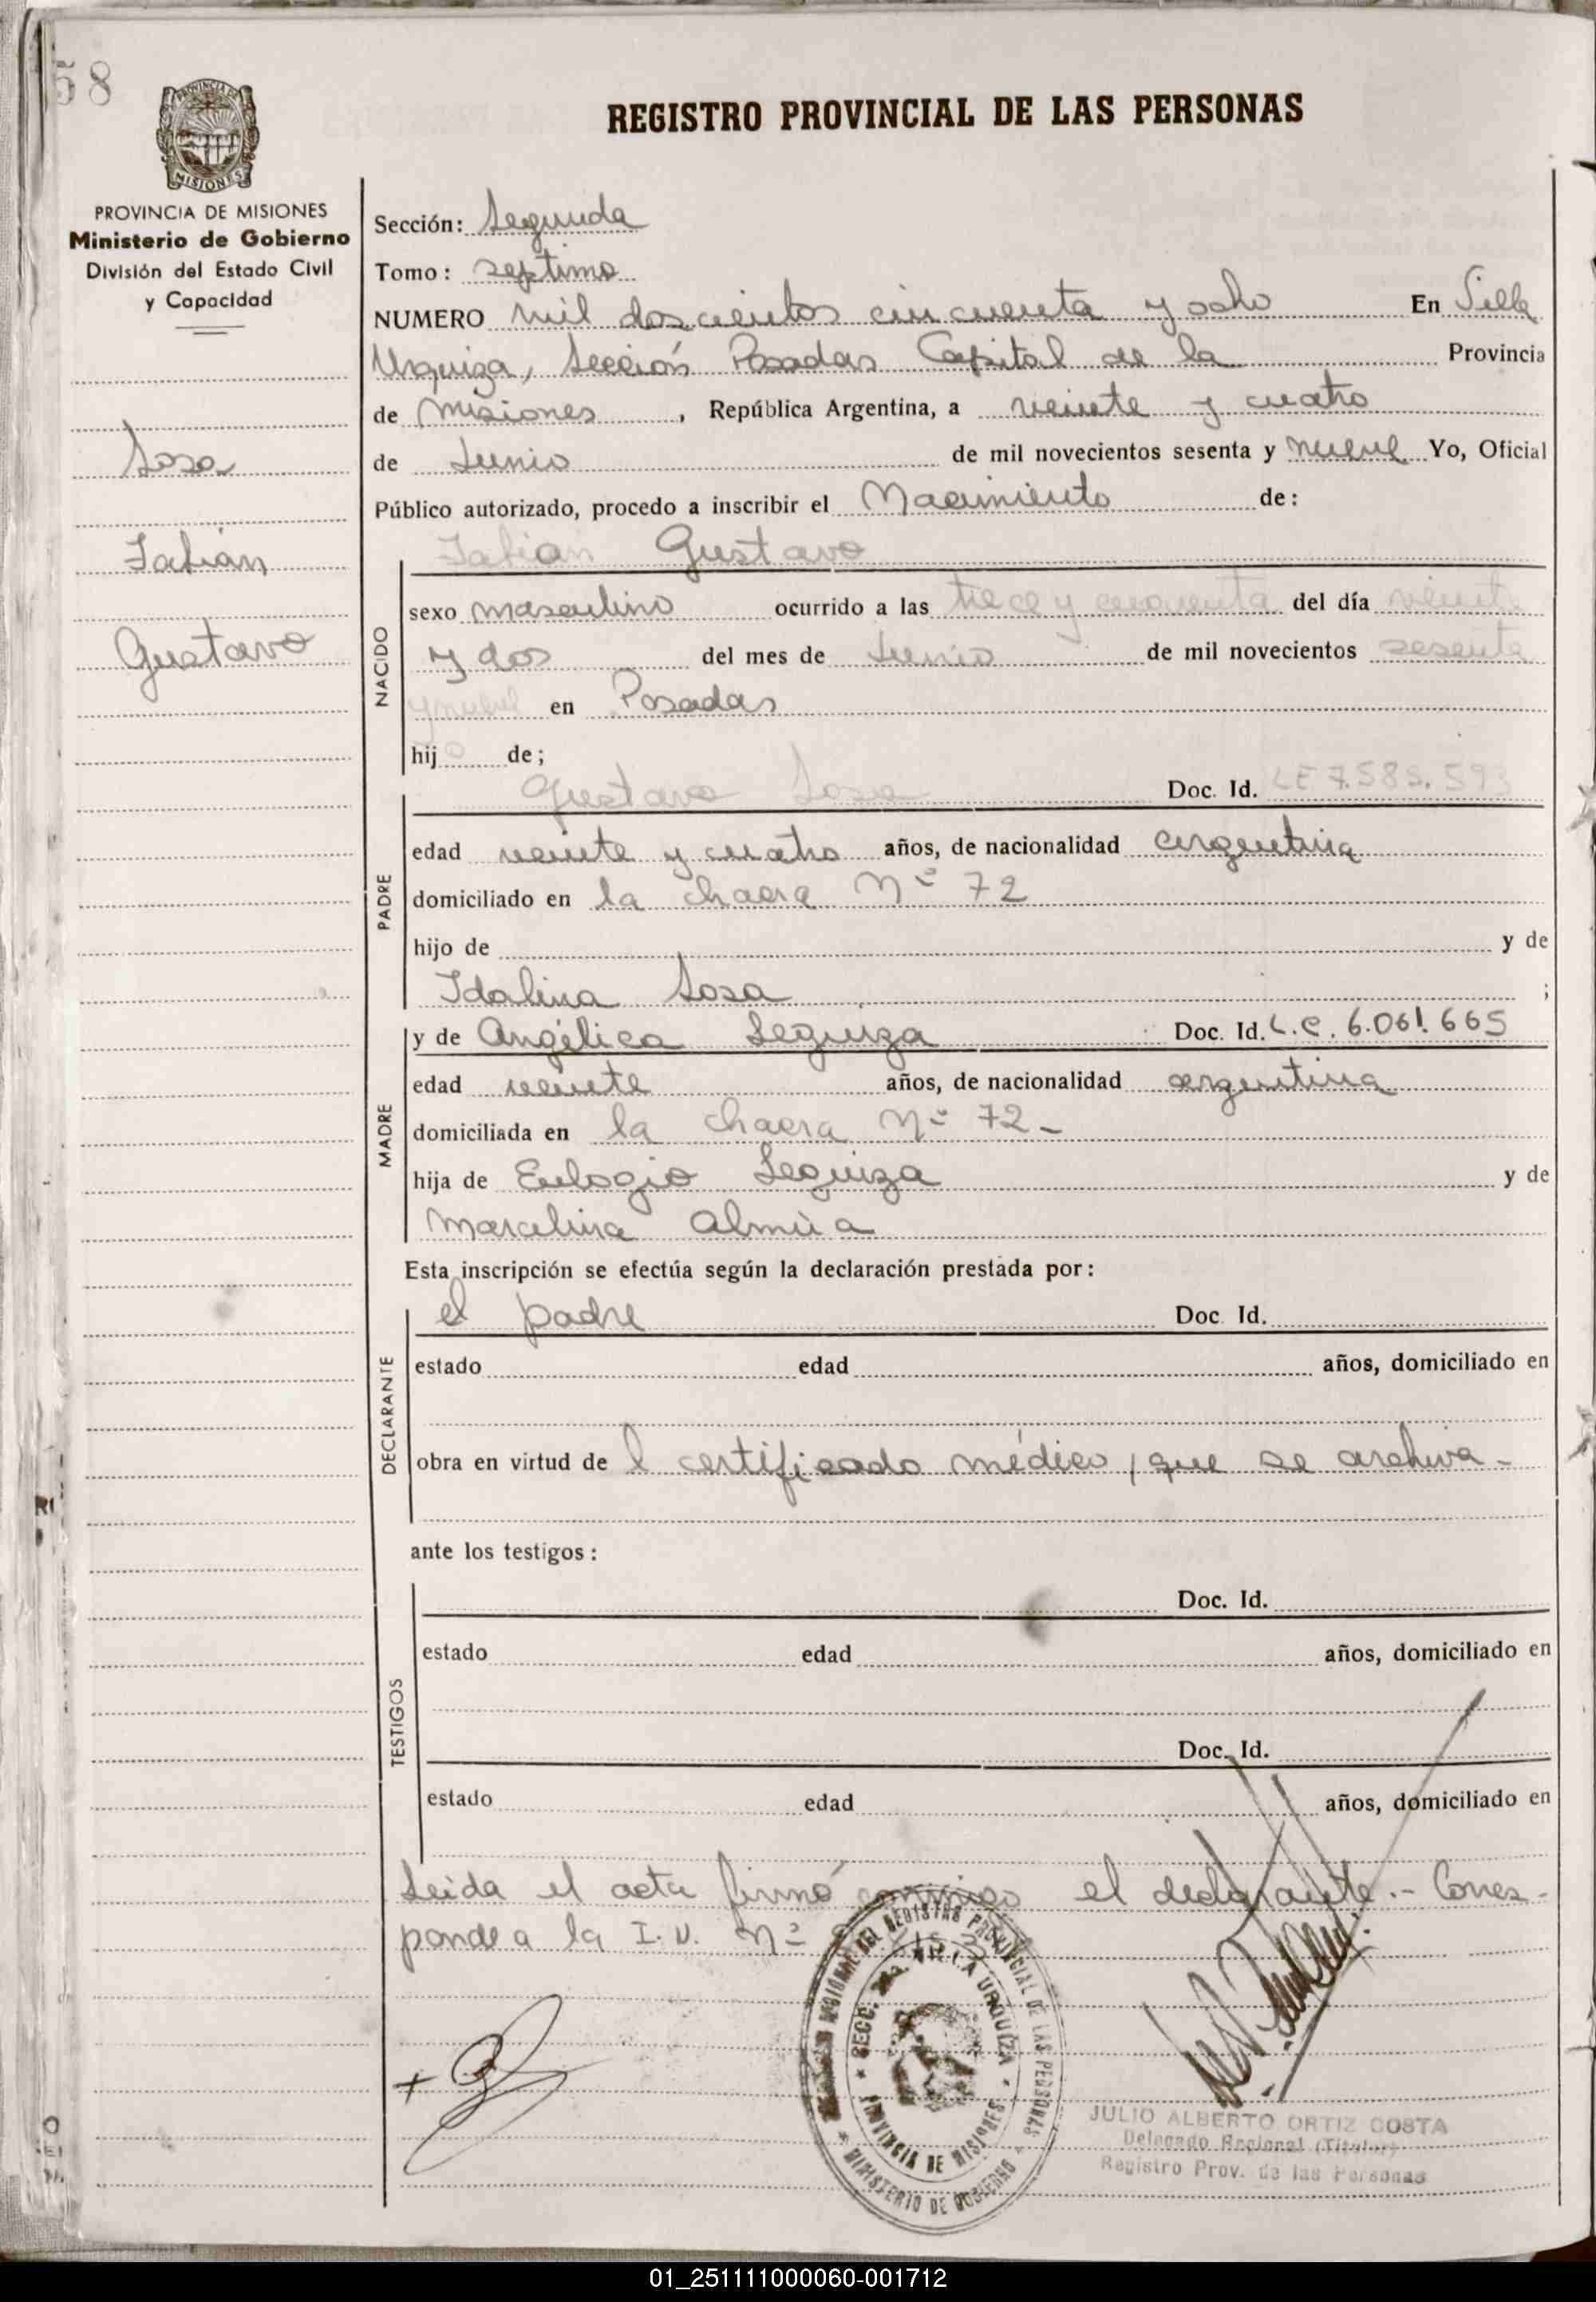 58
PROVINCIA DE
MISIONES
REGISTRO PROVINCIAL DE LAS PERSONAS
PROVINCIA DE MISIONES
Ministerio de Gobierno
División del Estado Civil
y Capacidad
Sosa
Fabián
Gustavo
Sección: Segunda
Tomo: septimo
NUMERO mil doscientos cincuenta y ocho En Villa
Urquiza, Sección Posadas Capital de la Provincia
de Misiones, República Argentina, a veinte y cuatro
de Junio de mil novecientos sesenta y nueve Yo, Oficial
Público autorizado, procedo a inscribir el Nacimiento de:
NACIDO
Fabian Gustavo
sexo masculino ocurrido a las trece y cincuenta del día veinte
y dos del mes de Junio de mil novecientos sesenta
y nueve en Posadas
hijo de;
PADRE
Gustavo Sosa Doc. Id. LE 7.585.593
edad veinte y cuatro años, de nacionalidad argentina
domiciliado en la chacra Nº 72
hijo de y de
Idalina Sosa ;
MADRE
y de Angélica Leguiza Doc. Id. L.C. 6.061.665
edad veinte años, de nacionalidad argentina
domiciliada en la chacra Nº 72 -
hija de Eulogio Leguiza y de
Marcelina Almúa
Esta inscripción se efectúa según la declaración prestada por:
DECLARANTE
el padre Doc. Id.
estado edad años, domiciliado en
obra en virtud de l certificado médico, que se archiva -
ante los testigos:
TESTIGOS
Doc. Id.
estado edad años, domiciliado en
Doc. Id.
estado edad años, domiciliado en
Leida el acta firmó conmigo el declarante.- Corres-
ponde a la I.U. Nº
REGIONAL DEL REGISTRO PROVINCIAL DE LAS PERSONAS
SECC. 2da. VILLA URQUIZA
PROVINCIA DE MISIONES
MINISTERIO DE GOBIERNO
JULIO ALBERTO ORTIZ COSTA
Delegado Regional (Titular)
Registro Prov. de las Personas
01_251111000060-001712